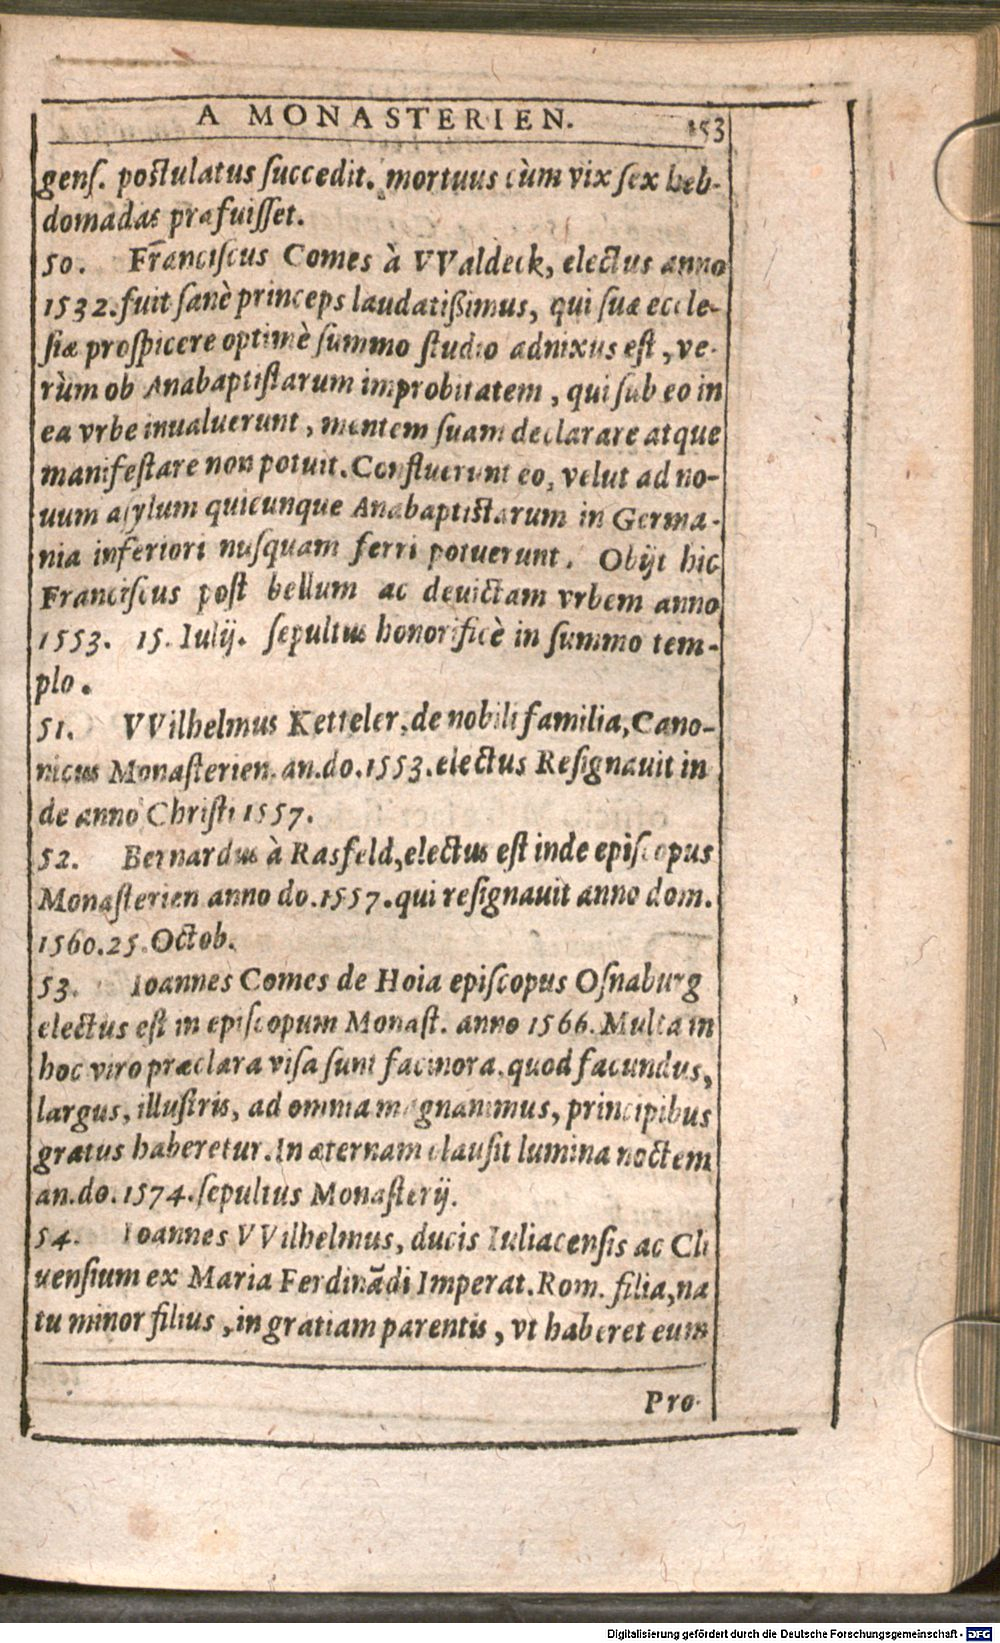 A MONASTERIEN.
153
genſ. poſtulatus ſuccedit. mortuus cùm vix ſex heb-
domadas præfuiſſet.
50. Franciſcus Comes à VValdeck, electus anno
1532. fuit ſanè princeps laudatißimus, qui ſuæ eccle-
ſiæ proſpicere optimè ſummo ſtudio adnixus eſt, ve-
rùm ob Anabaptiſtarum improbitatem, qui ſub eo in
ea vrbe inualuerunt, mentem ſuam declarare atque
manifeſtare non potuit. Confluerunt eo, velut ad no-
uum aſylum quicunque Anabaptiſtarum in Germa-
nia inferiori nuſquam ferri potuerunt. Obijt hic
Franciſcus poſt bellum ac deuictam vrbem anno
1553. 15. Iulij. ſepultus honorificè in ſummo tem-
plo.
51. VVilhelmus Ketteler, de nobili familia, Cano-
nicus Monaſterien. an. do. 1553. electus Reſignauit in
de anno Chriſti 1557.
52. Bernardus à Rasfeld, electus eſt inde epiſcopus
Monaſterien anno do. 1557. qui reſignauit anno dom.
1560. 25. Octob.
53. Ioannes Comes de Hoia epiſcopus Oſnaburg
electus eſt in epiſcopum Monaſt. anno 1566. Multa in
hoc viro præclara viſa ſunt facinora. quod facundus,
largus, illuſtris, ad omnia magnanimus, principibus
gratus haberetur. In æternam clauſit lumina noctem
an. do. 1574. ſepultus Monaſterij.
54. Ioannes VVilhelmus, ducis Iuliacenſis ac Cli
uenſium ex Maria Ferdinādi Imperat. Rom. filia, na
tu minor filius, in gratiam parentis, vt haberet eum
Pro-
Digitalisierung gefördert durch die Deutsche Forschungsgemeinschaft - DFG